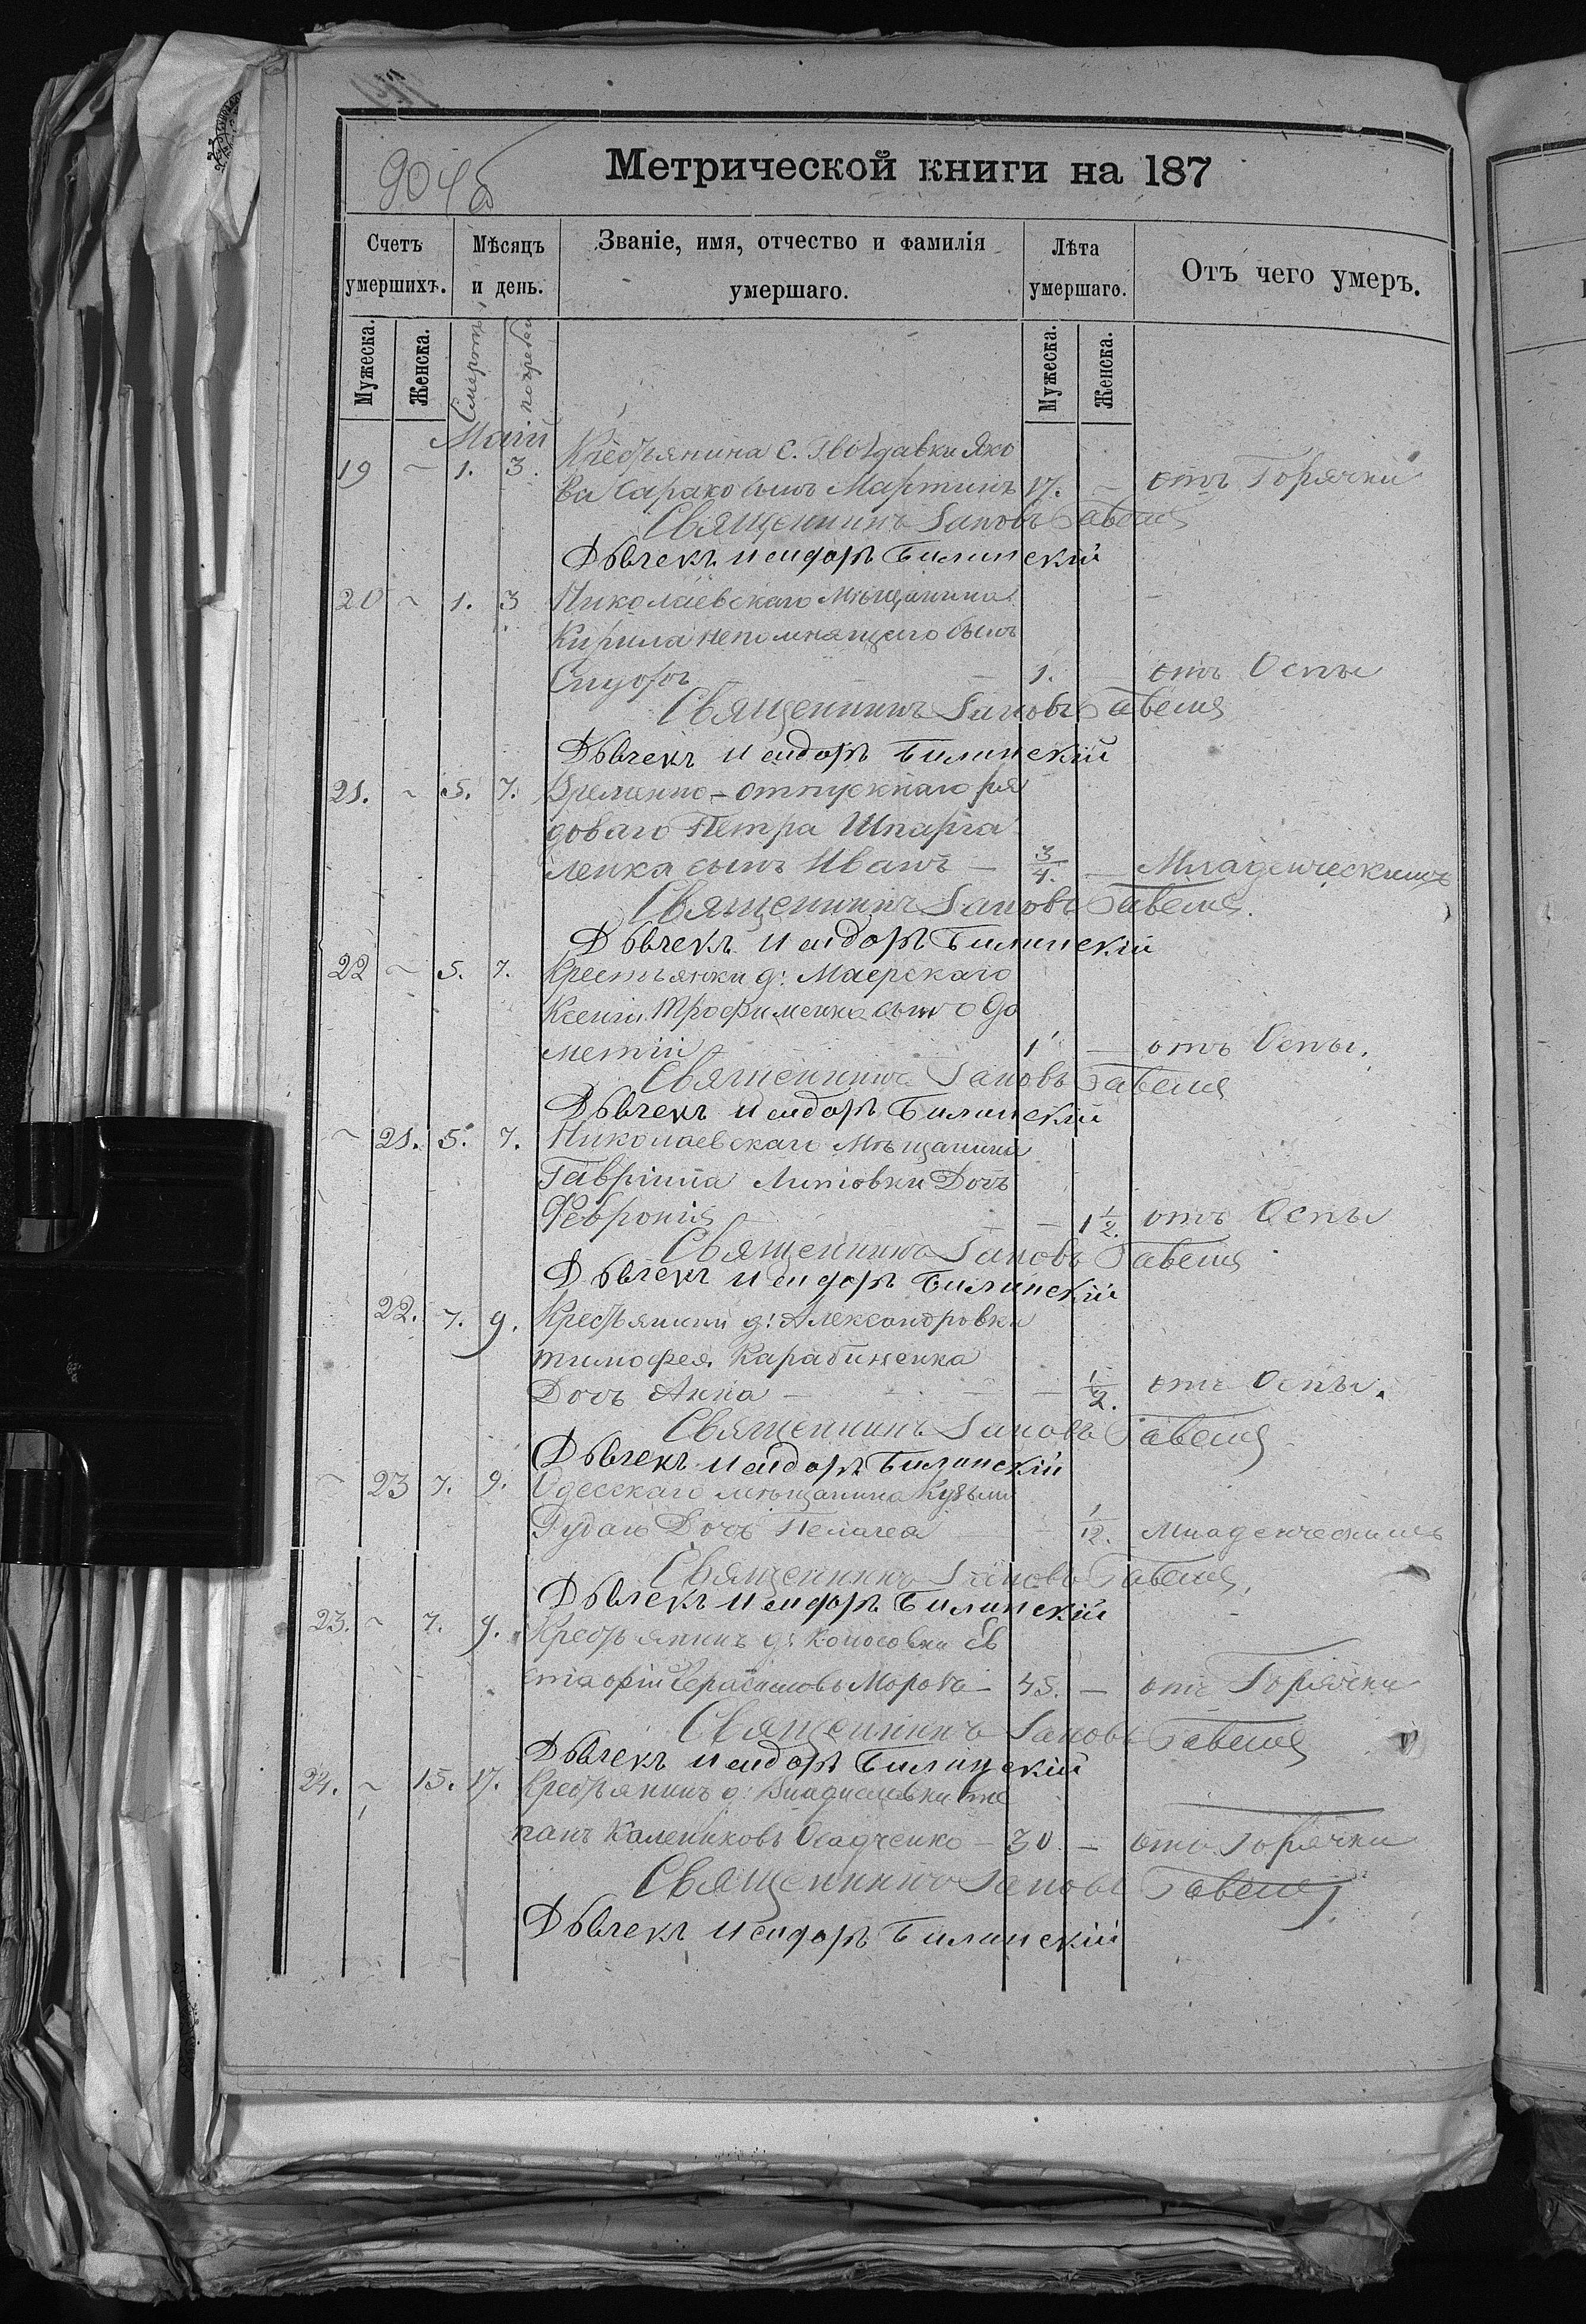 904б
Метрической книги на 187
Счетъ умершихъ.
Мѣсяцъ и день.
Званіе, имя, отчество и фамилія умершаго.
Лѣта умершаго.
Отъ чего умеръ.
Мужеска.
Женска.
Смерти
погребен
Мужеска.
Женска.
Маій
Крестьянина с. Гвоздавки Яко
19 ~ 1. 3. ва Сарако сынъ Мартинъ 17. ~ отъ Горячки
Священникъ Іаковъ Гавеля
Дьячекъ Исидоръ Билинскій
20 ~ 1. 3 Николаевскаго Мѣщанина
Кирила непомнящего сынъ
Сидоръ — 1. отъ Оспы
Священникъ Іаковъ Гавеля
Дьячекъ Исидоръ Билинскій
21. ~ 5. 7. Временно-отпускнаго ря
доваго Петра Шпарга
ленка сынъ Иванъ — 3/4. — Младенческимъ
Священникъ Іаковъ Гавеля.
Дьячекъ Исидоръ Билинскій
22 ~ 5. 7. Крестьянки д: Маерскаго
Ксеніи Трофименко сынъ
метій 1 — отъ Оспы.
Священникъ Іаковъ Гавеля
Дьячекъ Исидоръ Билинскій
~ 21. 5. 7. Николаевскаго Мѣщанина
Гавріила Липовки Дочь
Февронія — — 1 1/2. отъ Оспы
Священникъ Іаковъ Гавеля
Дьячекъ Исидоръ Билинскій
22. 7. 9. Крестьянина д: Александровки
Тимофея Карабиненка
Дочь Анна — — — 1/2. отъ Оспы.
Священникъ Іаковъ Гавеля
Дьячекъ Исидоръ Билинскій
~ 23 7. 9. Одесскаго мѣщанина Кузьмы
Дочь Пелагея 1/12. Младенческимъ
Священникъ Іаковъ Гавеля.
Дьячекъ Исидоръ Билинскій
23. ~ 7. 9. Крестьянинъ д: Колосовки Ев
стафій Герасимовъ Морозъ — 45. — отъ Горячки
Священникъ Іаковъ Гавеля
Дьячекъ Исидоръ Билинскій
24. ~ 15. 17. Крестьянинъ д: Сте
панъ Калениковъ Осадченко — 30 — отъ Горячки
Священникъ Іаковъ Гавеля
Дьячекъ Исидоръ Билинскій